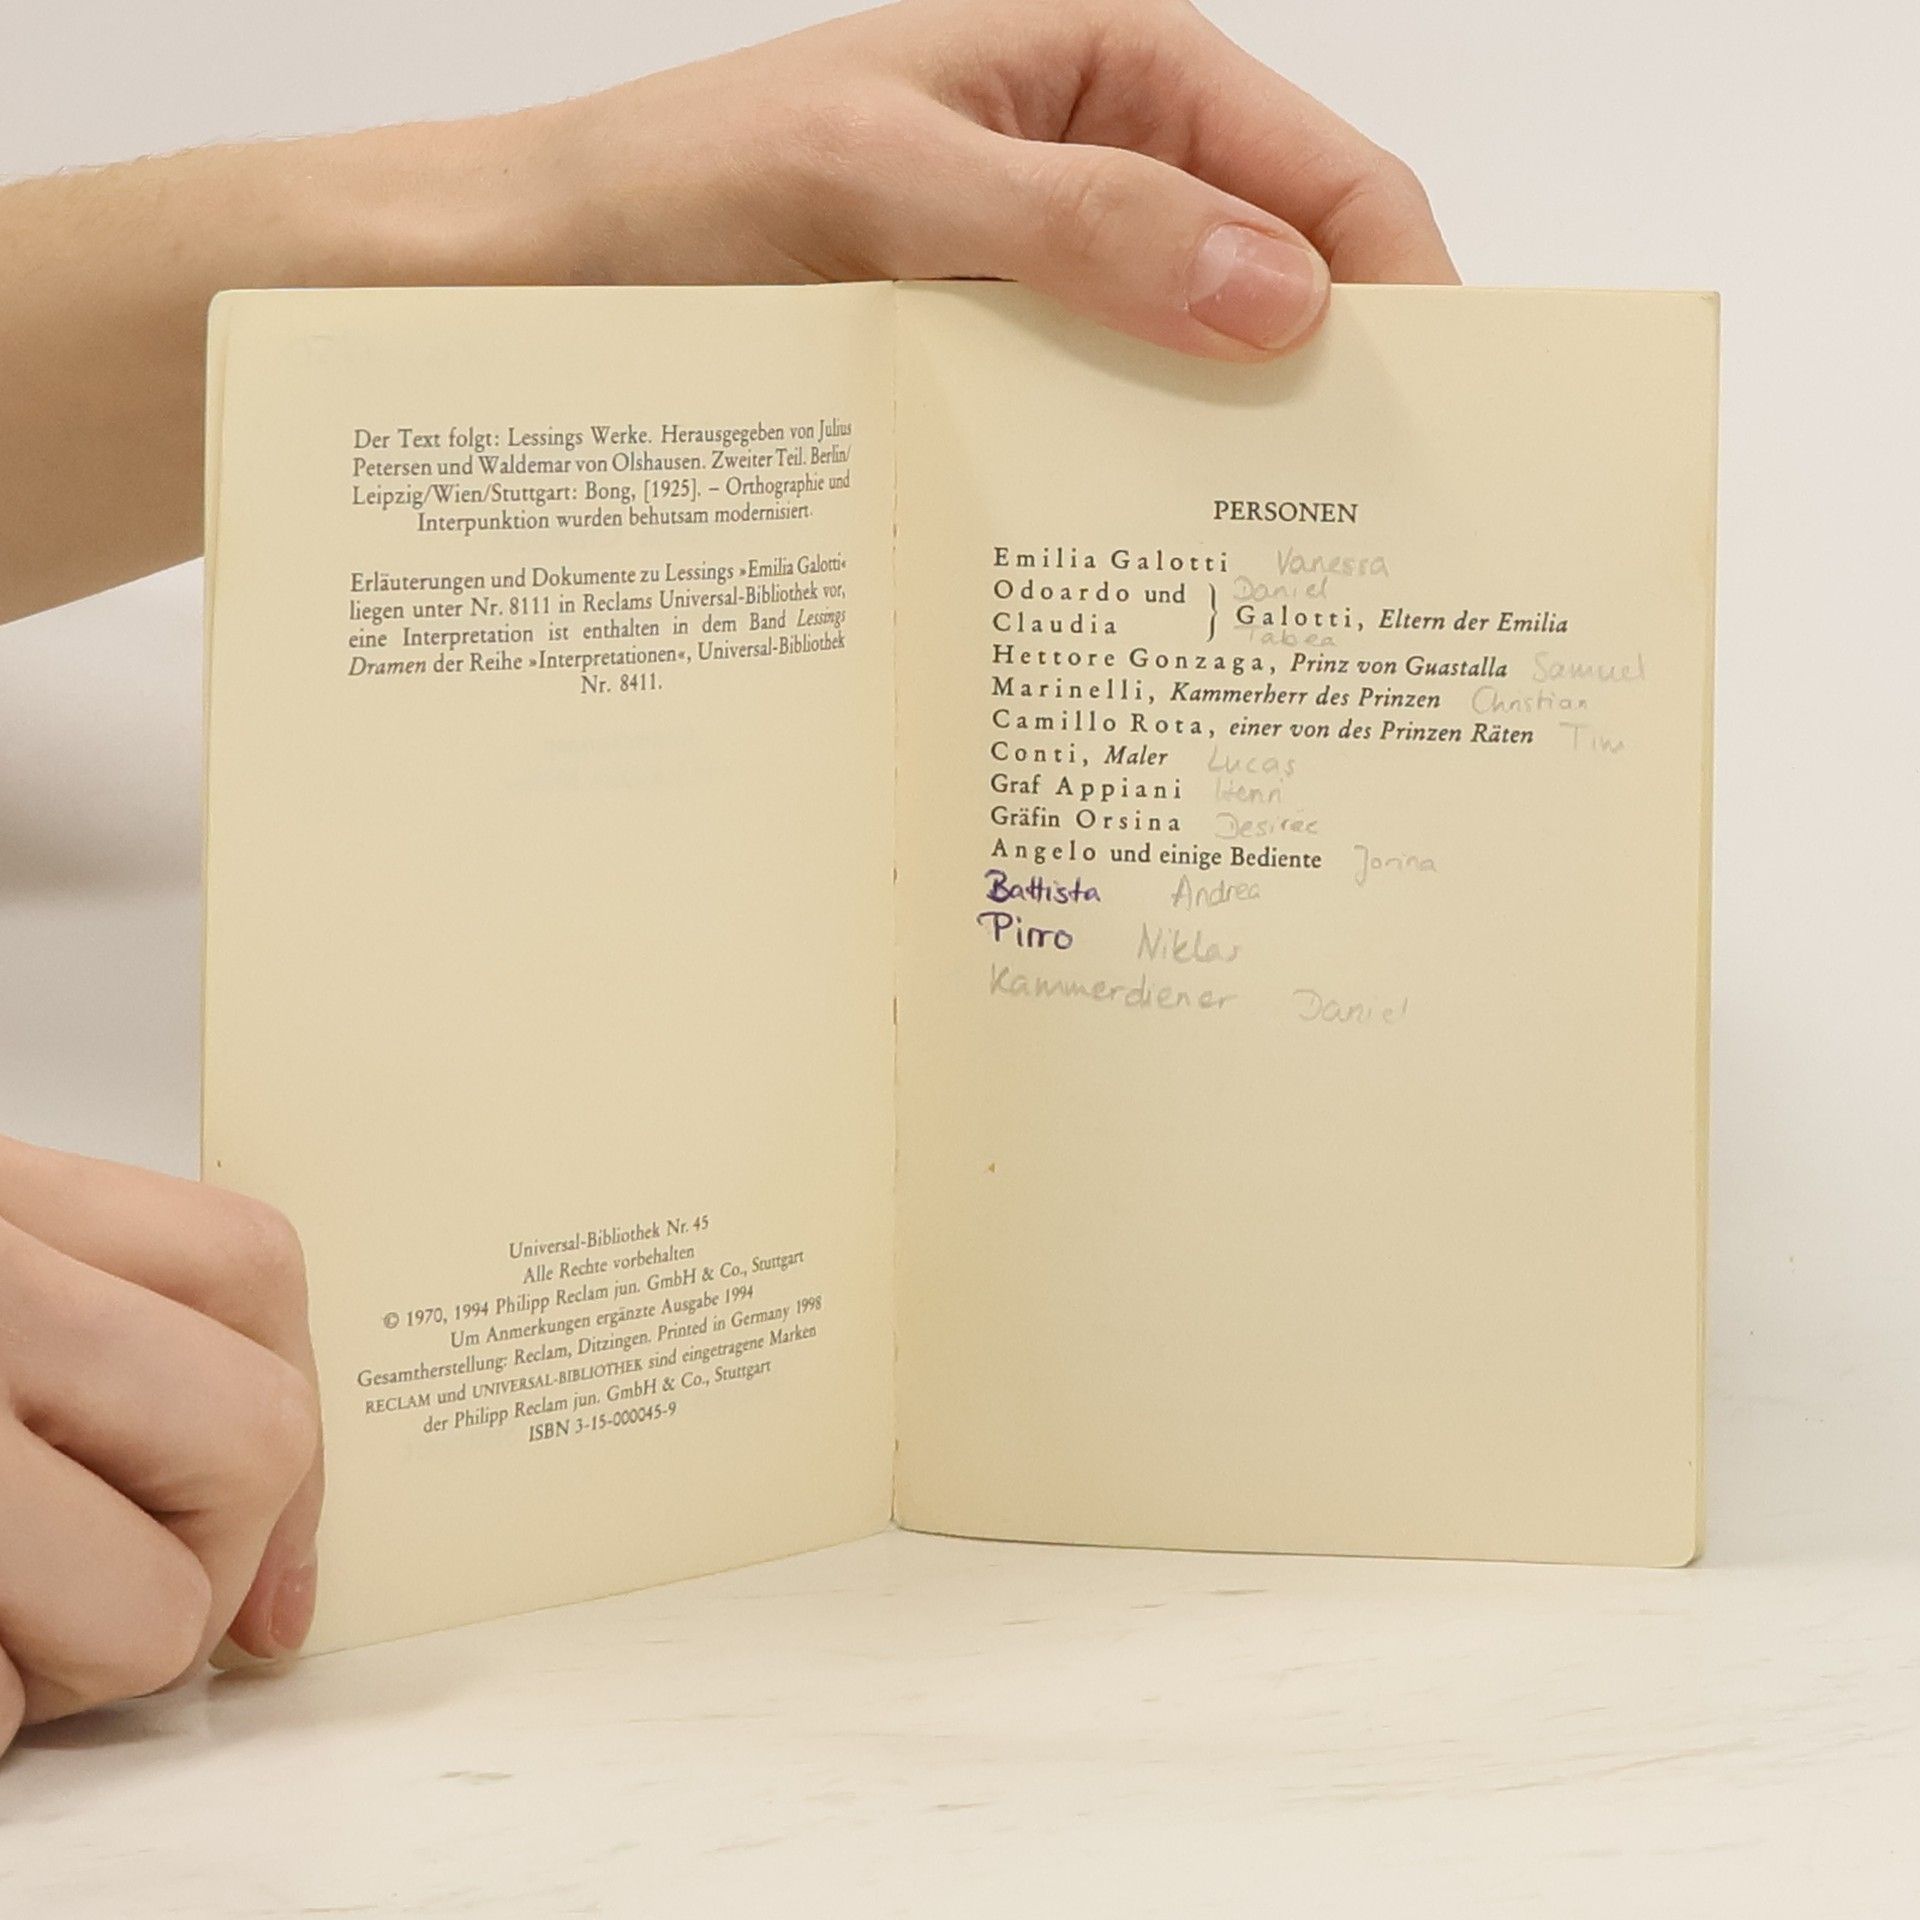 Der Text folgt: Lessings Werke. Herausgegeben von Julius
Petersen und Waldemar von Olshausen. Zweiter Teil. Berlin/
Leipzig/Wien/Stuttgart: Bong, [1925]. – Orthographie und
Interpunktion wurden behutsam modernisiert.
Erläuterungen und Dokumente zu Lessings »Emilia Galotti«
liegen unter Nr. 8111 in Reclams Universal-Bibliothek vor,
eine Interpretation ist enthalten in dem Band Lessings
Dramen der Reihe »Interpretationen«, Universal-Bibliothek
Nr. 8411.
Universal-Bibliothek Nr. 45
Alle Rechte vorbehalten
© 1970, 1994 Philipp Reclam jun. GmbH & Co., Stuttgart
Um Anmerkungen ergänzte Ausgabe 1994
Gesamtherstellung: Reclam, Ditzingen. Printed in Germany 1998
RECLAM und UNIVERSAL-BIBLIOTHEK sind eingetragene Marken
der Philipp Reclam jun. GmbH & Co., Stuttgart
ISBN 3-15-000045-9
PERSONEN
Emilia Galotti Vanessa
Odoardo und Daniel
Claudia } Galotti, Eltern der Emilia
Tabea
Hettore Gonzaga, Prinz von Guastalla Samuel
Marinelli, Kammerherr des Prinzen Christian
Camillo Rota, einer von des Prinzen Räten Tim
Conti, Maler Lucas
Graf Appiani Henri
Gräfin Orsina Desirée
Angelo und einige Bediente Jorina
Battista Andrea
Pirro Niklas
Kammerdiener Daniel